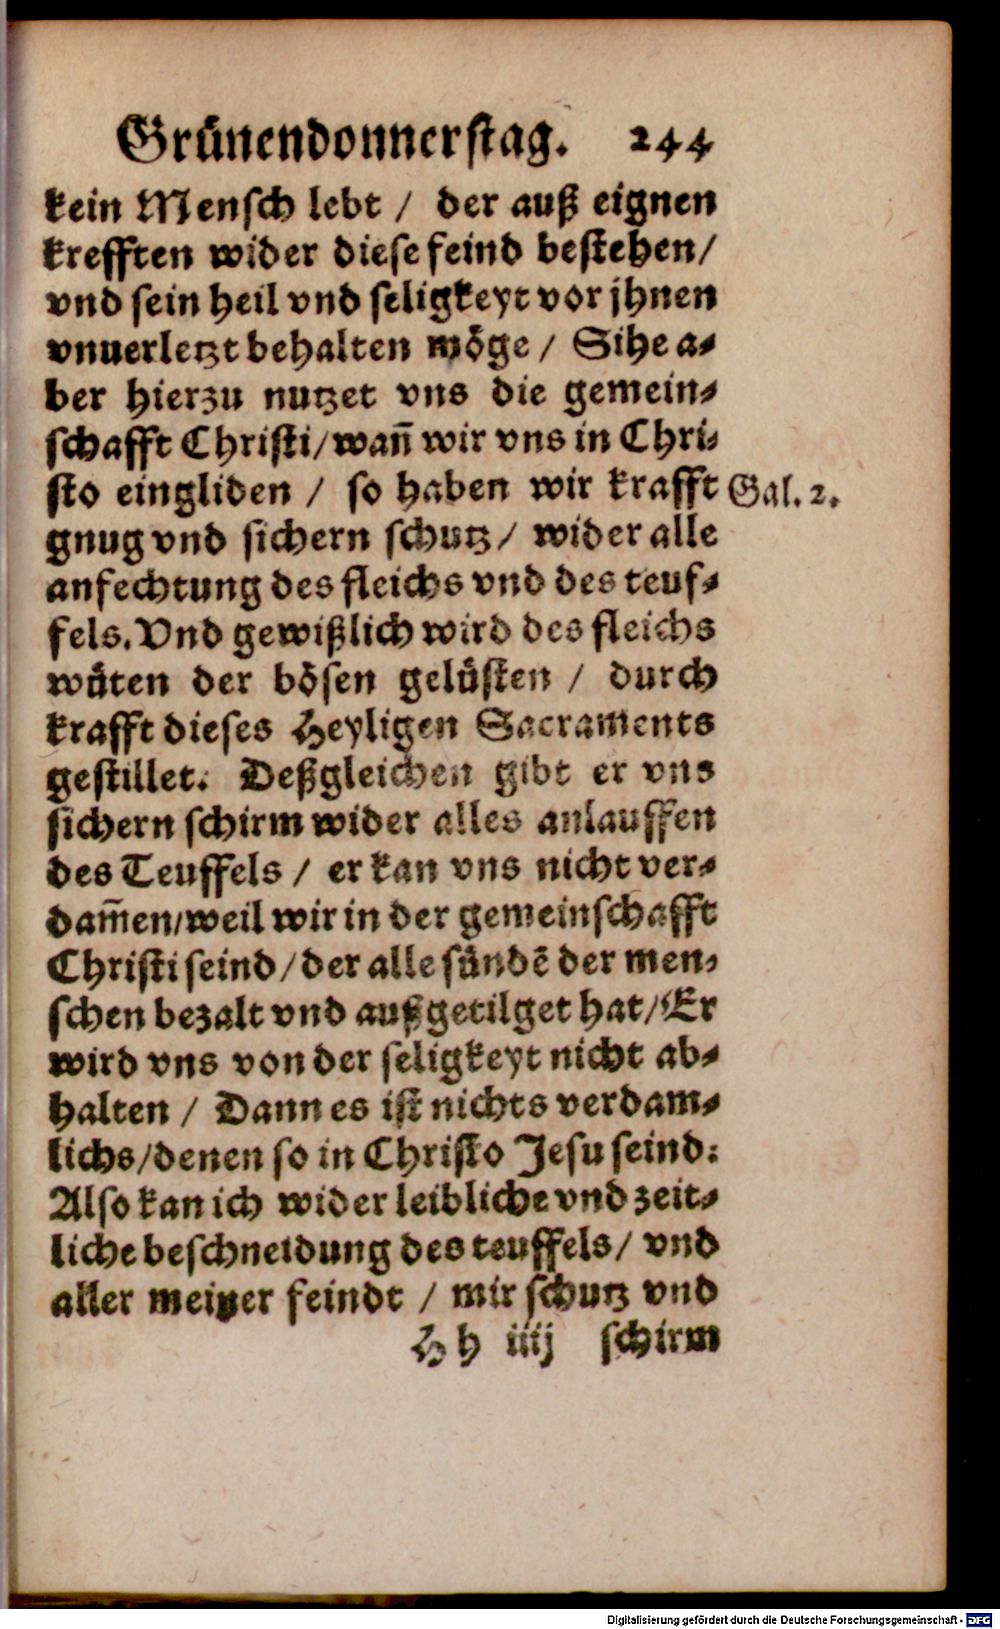 Grünendonnerstag. 244
kein Mensch lebt / der auß eignen
krefften wider diese feind bestehen/
vnd sein heil vnd seligkeyt vor jhnen
vnuerletzt behalten möge / Sihe a-
ber hierzu nutzet vns die gemein-
schafft Christi/wañ wir vns in Chri-
sto eingliden / so haben wir krafft
Gal. 2.
gnug vnd sichern schutz / wider alle
anfechtung des fleichs vnd des teuf-
fels. Vnd gewißlich wird des fleichs
wüten der bösen gelüsten / durch
krafft dieses Heyligen Sacraments
gestillet. Deßgleichen gibt er vns
sichern schirm wider alles anlauffen
des Teuffels / er kan vns nicht ver-
dam̄en/weil wir in der gemeinschafft
Christi seind/der alle sündē der men-
schen bezalt vnd außgetilget hat/Er
wird vns von der seligkeyt nicht ab-
halten / Dann es ist nichts verdam-
lichs/denen so in Christo Jesu seind:
Also kan ich wider leibliche vnd zeit-
liche beschneidung des teuffels/ vnd
aller meiner feindt / mir schutz vnd
Hh iiij schirm
Digitalisierung gefördert durch die Deutsche Forschungsgemeinschaft - DFG